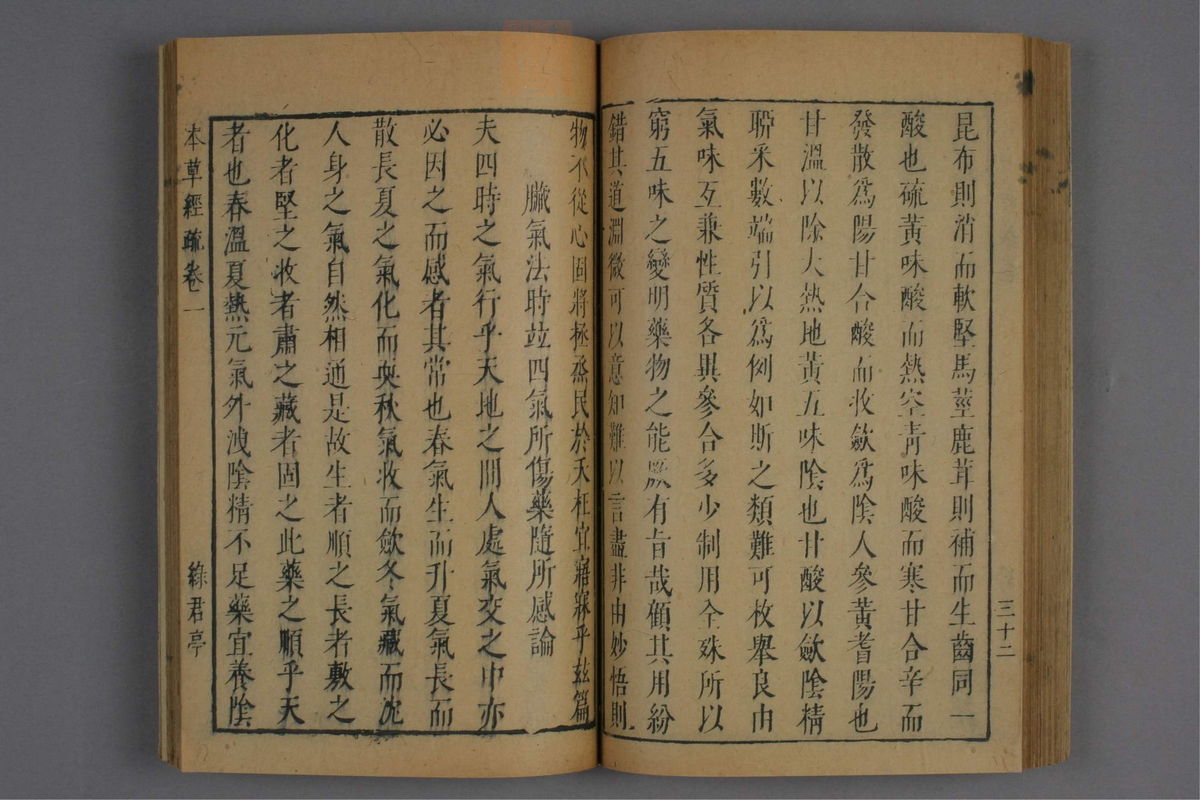 昆布則消而軟堅馬莖鹿茸則補而生齒同一
酸也硫黃味酸而熱空青味酸而寒甘合辛而
發散爲陽甘合酸而收斂爲陰人參黃耆陽也
甘溫以除大熱地黃五味陰也甘酸以斂陰精
聊采數端引以爲例如斯之類難可枚舉良由
氣味互兼性質各異參合多少制用全殊所以
窮五味之變明藥物之能厥有旨哉顧其用紛
錯其道淵微可以意知難以言盡非由妙悟則
三十二
物不從心固將拯烝民於夭枉宜寤寐乎玆篇
臟氣法時竝四氣所傷藥隨所感論
夫四時之氣行乎天地之間人處氣交之中亦
必因之而感者其常也春氣生而升夏氣長而
散長夏之氣化而耎秋氣收而斂冬氣藏而沈
人身之氣自然相通是故生者順之長者敷之
化者堅之收者肅之藏者固之此藥之順乎天
者也春溫夏熱元氣外洩陰精不足藥宜養陰
本草經疏卷一
綠君亭